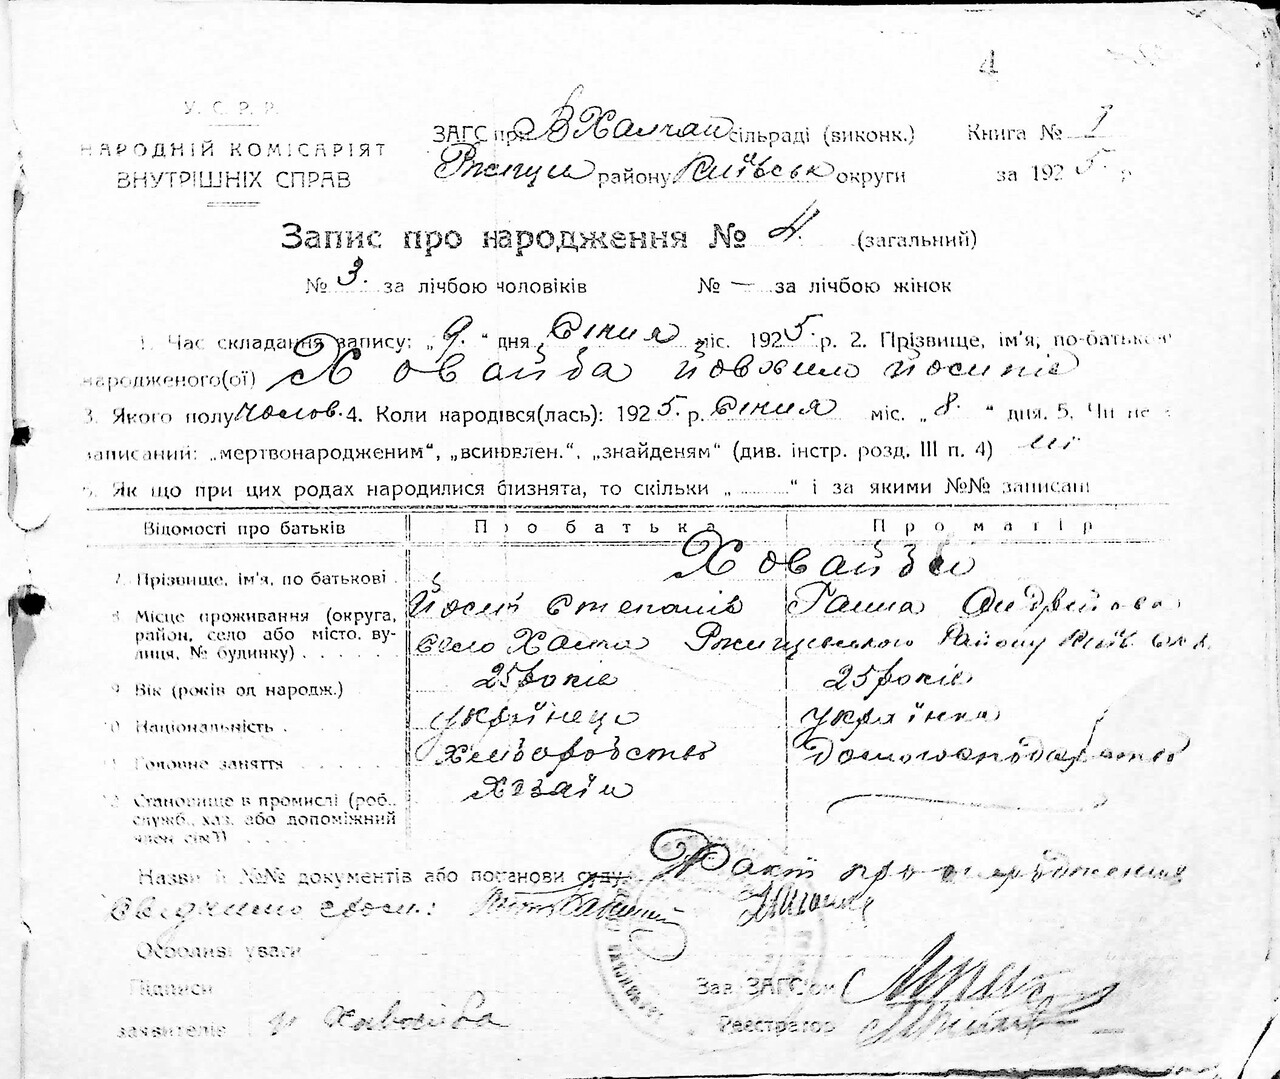 4
У. С. Р. Р.
НАРОДНІЙ КОМІСАРІЯТ
ВНУТРІШНІХ СПРАВ
ЗАГС при В Халчай сільраді (виконк.) Книга № 1
Ржищи району Київськ округи за 1925 р
Запис про народження № 4. (загальний)
№ 3. за лічбою чоловіків № — за лічбою жінок
1. Час складання запису: „9.“ дня Січня міс. 1925. р. 2. Прізвище, ім'я, по-батькові
народженого(ої) Ховайба Йовхим Йосипів
3. Якого полу чолов. 4. Коли народівся(лась): 1925. р. Січня міс. „8.“ дня. 5. Чи не
записаний: „мертвонародженим“, „всиновлен.“, „знайденям“ (див. інстр. розд. III п. 4) ні
6. Як що при цих родах народилися близнята, то скільки „ “ і за якими №№ записані
Відомості про батьків Про батька Про матір
Ховайби
7. Прізвище, ім'я, по батькові
Йосип Степанів Ганна Андрейова
8. Місце проживання (округа, район, село або місто, вулиця, № будинку)
село Халча Ржищівського Району Київ окр.
9. Вік (років од народж.) 25 років 25 років
10. Національність українець українка
11. Головне заняття Хліборобство Домогосподарство
12. Становище в промислі (роб., служб., хаз. або допоміжний член сім'ї) Хазаїн
Назви й №№ документів або постанови суду: Факт про народження
свідчимо
Особливі уваги
Підписи
заявителів
Зав. ЗАГС'ом
Реєстратор